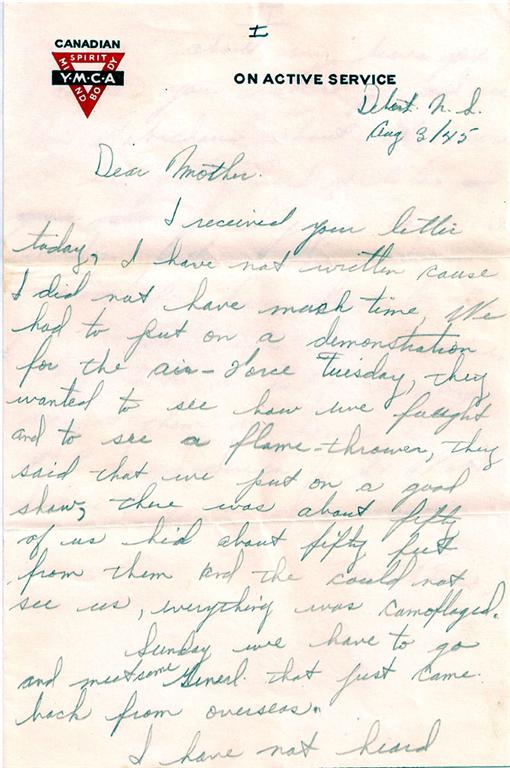 I
CANADIAN
SPIRIT
MIND
Y·M·C·A
BODY
ON ACTIVE SERVICE
Debert. N. S.
Aug 3/45
Dear Mother.
I received your letter
today, I have not written cause
I did not have mush time, We
had to put on a demonstration
for the air-Force Tuesday, they
wanted to see how we faught
and to see a flame-thrower, they
said that we put on a good
show, there was about fifty
of us hid about fifty feet
from them and the could not
see us, everything was camoflaged.
Sunday we have to go
and meat some General that just came
back from overseas.
I have not heard